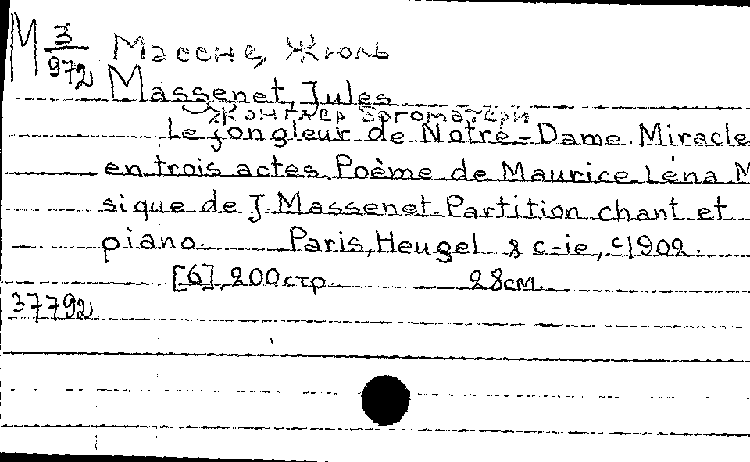 M 3/972 Массне, Жюль
Massenet, Jules
Жонглер Богоматери
Le jongleur de Notre-Dame. Miracle
en trois actes. Poème de Maurice Léna. M
sique de J. Massenet. Partition chant et
piano. Paris, Heugel & c-ie, c1902.
[6], 200 стр. 28 см.
37792